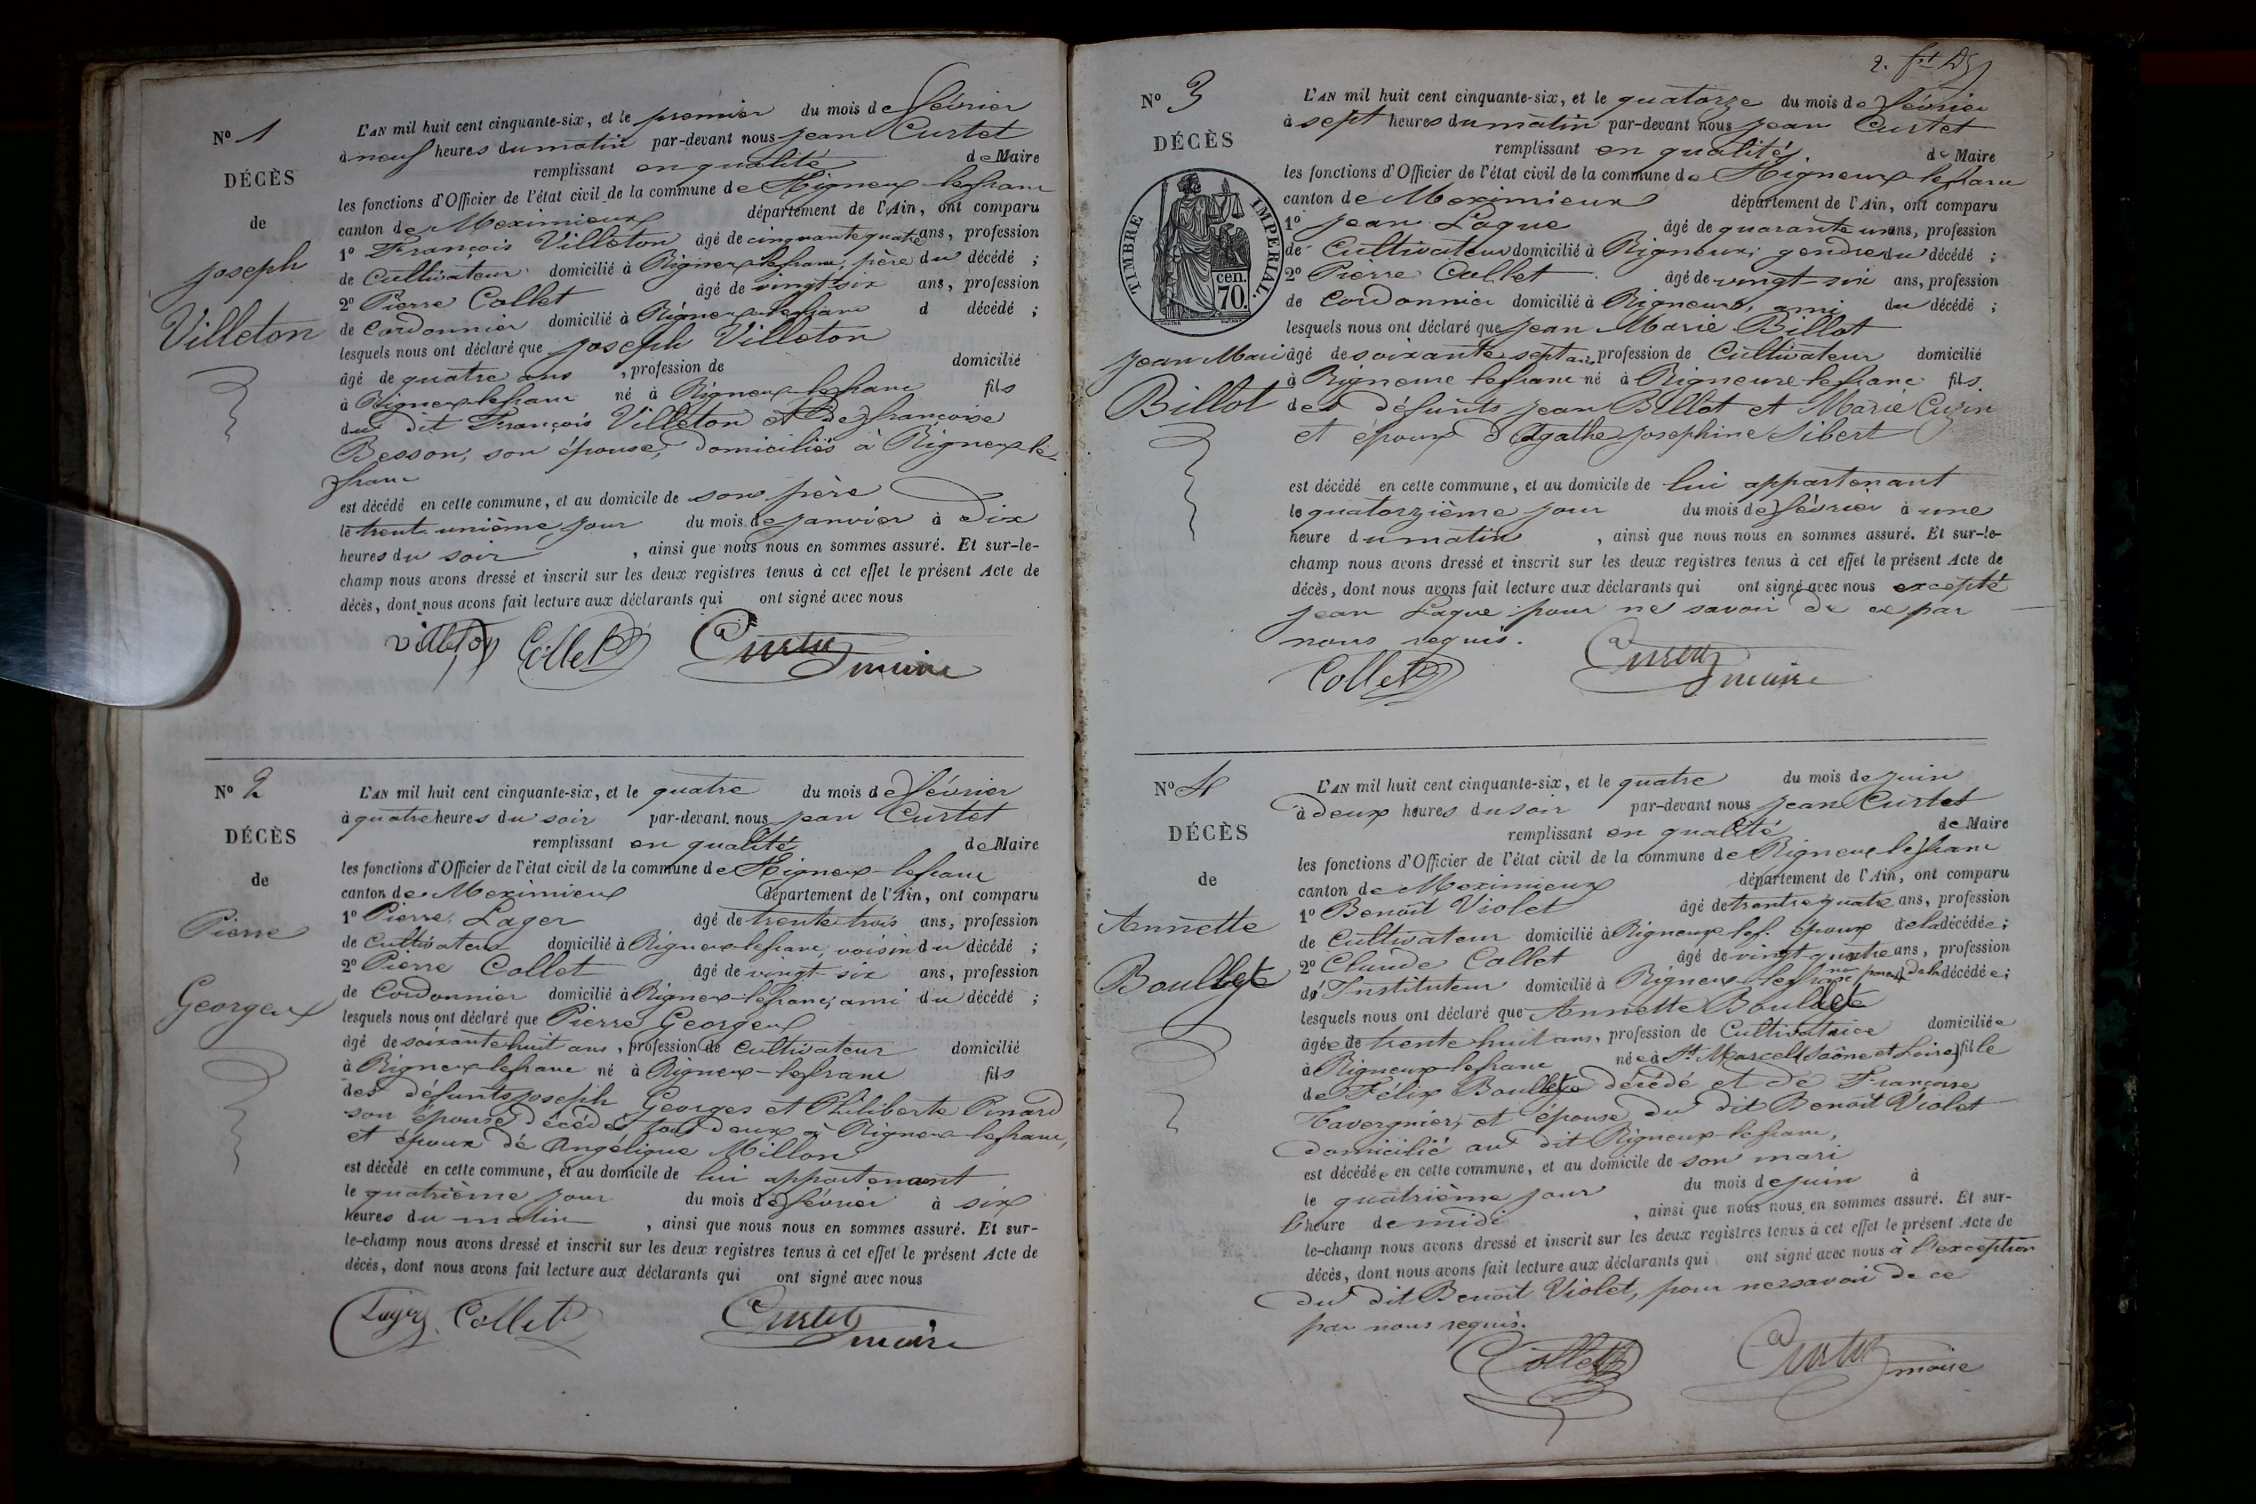 N° 1
DÉCÈS
de
Joseph
Villeton
L'AN mil huit cent cinquante-six, et le premier du mois de février
à neuf heures du matin par-devant nous Jean Curtet
remplissant en qualité de Maire
les fonctions d'Officier de l'état civil de la commune de Rigneux-lefranc
canton de Meximieux département de l'Ain, ont comparu
1° François Villeton âgé de cinquante quatre ans, profession
de Cultivateur domicilié à Rigneux-lefranc, père du décédé ;
2° Pierre Collet âgé de vingt-six ans, profession
de Cordonnier domicilié à Rigneux-lefranc d décédé ;
lesquels nous ont déclaré que Joseph Villeton
âgé de quatre ans , profession de domicilié
à Rigneux-lefranc né à Rigneux-lefranc fils
du dit François Villeton et de françoise
Besson, son épouse, domiciliés à Rigneux-le
franc
est décédé en cette commune, et au domicile de son père
le trent-unième jour du mois de janvier à dix
heures du soir , ainsi que nous nous en sommes assuré. Et sur-le-
champ nous avons dressé et inscrit sur les deux registres tenus à cet effet le présent Acte de
décès, dont nous avons fait lecture aux déclarants qui ont signé avec nous
Villeton Collet Curtet
maire
N° 2
DÉCÈS
de
Pierre
Georgeux
L'AN mil huit cent cinquante-six, et le quatre du mois de février
à quatre heures du soir par-devant nous Jean Curtet
remplissant en qualité de Maire
les fonctions d'Officier de l'état civil de la commune de Rigneux-lefranc
canton de Meximieux département de l'Ain, ont comparu
1° Pierre Lager âgé de trente trois ans, profession
de Cultivateur domicilié à Rigneux-lefranc, voisin du décédé ;
2° Pierre Collet âgé de vingt six ans, profession
de Cordonnier domicilié à Rigneux-lefranc, ami du décédé ;
lesquels nous ont déclaré que Pierre Georgeux
âgé de soixante huit ans , profession de Cultivateur domicilié
à Rigneux-lefranc né à Rigneux-lefranc fils
des défunts Joseph Georges et Philiberte Pinard
son épouse décédés tous deux à Rigneux-lefranc,
et époux de Angélique Millon
est décédé en cette commune, et au domicile de lui appartenant
le quatrième jour du mois de février à six
heures du matin , ainsi que nous nous en sommes assuré. Et sur-
le-champ nous avons dressé et inscrit sur les deux registres tenus à cet effet le présent Acte de
décès, dont nous avons fait lecture aux déclarants qui ont signé avec nous
Lager Collet Curtet
maire
2.
N° 3
DÉCÈS
TIMBRE IMPÉRIAL.
70 cen.
Jean Marie
Billot
L'AN mil huit cent cinquante-six, et le quatorze du mois de février
à sept heures du matin par-devant nous Jean Curtet
remplissant en qualité de Maire
les fonctions d'Officier de l'état civil de la commune de Rigneux-lefranc
canton de Meximieux département de l'Ain, ont comparu
1° Jean Laque âgé de quarante un ans, profession
de Cultivateur domicilié à Rigneux, gendre du décédé ;
2° Pierre Collet âgé de vingt-six ans, profession
de Cordonnier domicilié à Rigneux, ami du décédé ;
lesquels nous ont déclaré que Jean Marie Billot
âgé de soixante sept ans, profession de Cultivateur domicilié
à Rigneux lefranc né à Rigneux lefranc fils
des défunts Jean Billot et Marie Cuzin
et époux d'Agathe Josephine Sibert
est décédé en cette commune, et au domicile de lui appartenant
le quatorzième jour du mois de février à une
heure du matin , ainsi que nous nous en sommes assuré. Et sur-le-
champ nous avons dressé et inscrit sur les deux registres tenus à cet effet le présent Acte de
décès, dont nous avons fait lecture aux déclarants qui ont signé avec nous excepté
Jean Laque pour ne savoir de ce par
nous requis.
Collet Curtet
maire
N° 4
DÉCÈS
de
Annette
Boullet
L'AN mil huit cent cinquante-six, et le quatre du mois de juin
à deux heures du soir par-devant nous Jean Curtet
remplissant en qualité de Maire
les fonctions d'Officier de l'état civil de la commune de Rigneux lefranc
canton de Meximieux département de l'Ain, ont comparu
1° Benoît Violet âgé de trente quatre ans, profession
de Cultivateur domicilié à Rigneux-lef. époux de la décédée ;
2° Claude Collet âgé de vingt quatre ans, profession
d'Instituteur domicilié à Rigneux-lefranc, non parent de la décédée ;
lesquels nous ont déclaré que Annette
âgée de trente huit ans, profession de Cultivatrice domiciliée
à Rigneux-lefranc née à St Marcel (Saône et Loire) fille
de Félix décédé et de Françoise
Tavergnier, et épouse du dit Benoît Violet
domicilié au dit Rigneux-lefranc,
est décédée en cette commune, et au domicile de son mari
le quatrième jour du mois de juin à
l'heure de midi , ainsi que nous nous en sommes assuré. Et sur-
le-champ nous avons dressé et inscrit sur les deux registres tenus à cet effet le présent Acte de
décès, dont nous avons fait lecture aux déclarants qui ont signé avec nous à l'exception
du dit Benoît Violet, pour ne savoir de ce
par nous requis.
Collet Curtet
maire